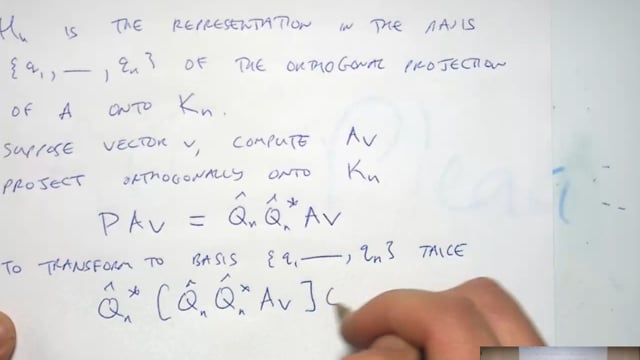 Hn IS THE REPRESENTATION IN THE BASIS
{q1, —, qn} OF THE ORTHOGONAL PROJECTION
OF A ONTO Kn.
SUPPOSE VECTOR v, COMPUTE Av
PROJECT ORTHOGONALLY ONTO Kn
PAv = Q̂n Q̂n* Av
TO TRANSFORM TO BASIS {q1 —, qn} TAKE
Q̂n* [Q̂n Q̂n* Av] (